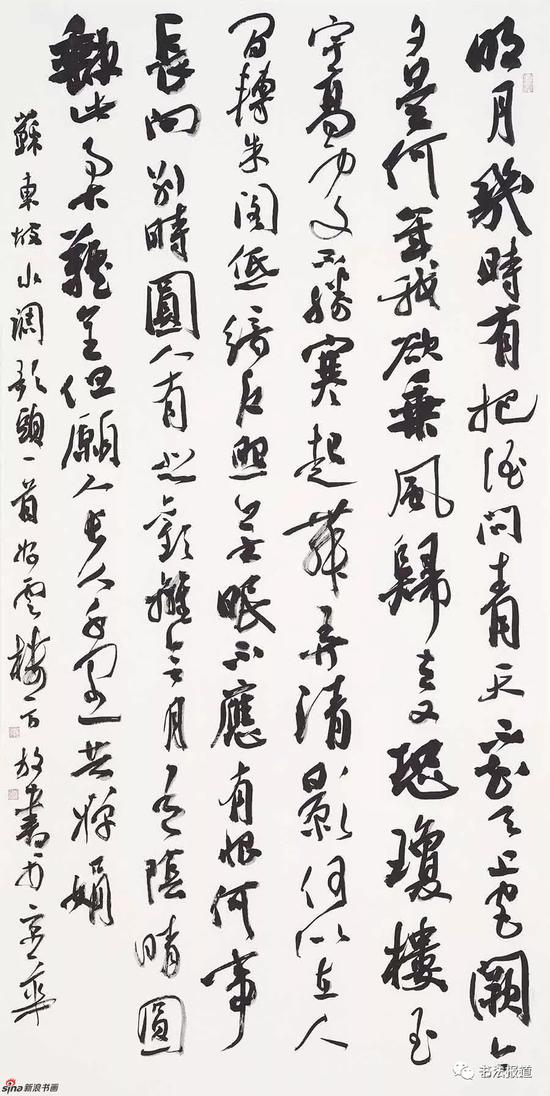 明月幾時有把酒問青天不知天上宮闕今
夕是何年我欲乘風歸去又恐瓊樓玉
宇高處不勝寒起舞弄清影何似在人
間轉朱閣低綺戶照無眠不應有恨何事
長向別時圓人有悲歡離合月有陰晴圓
缺此事古難全但願人長久千里共嬋娟
蘇東坡水調歌頭一首 雲樓 放書 京華
sina新浪书画
书法报道